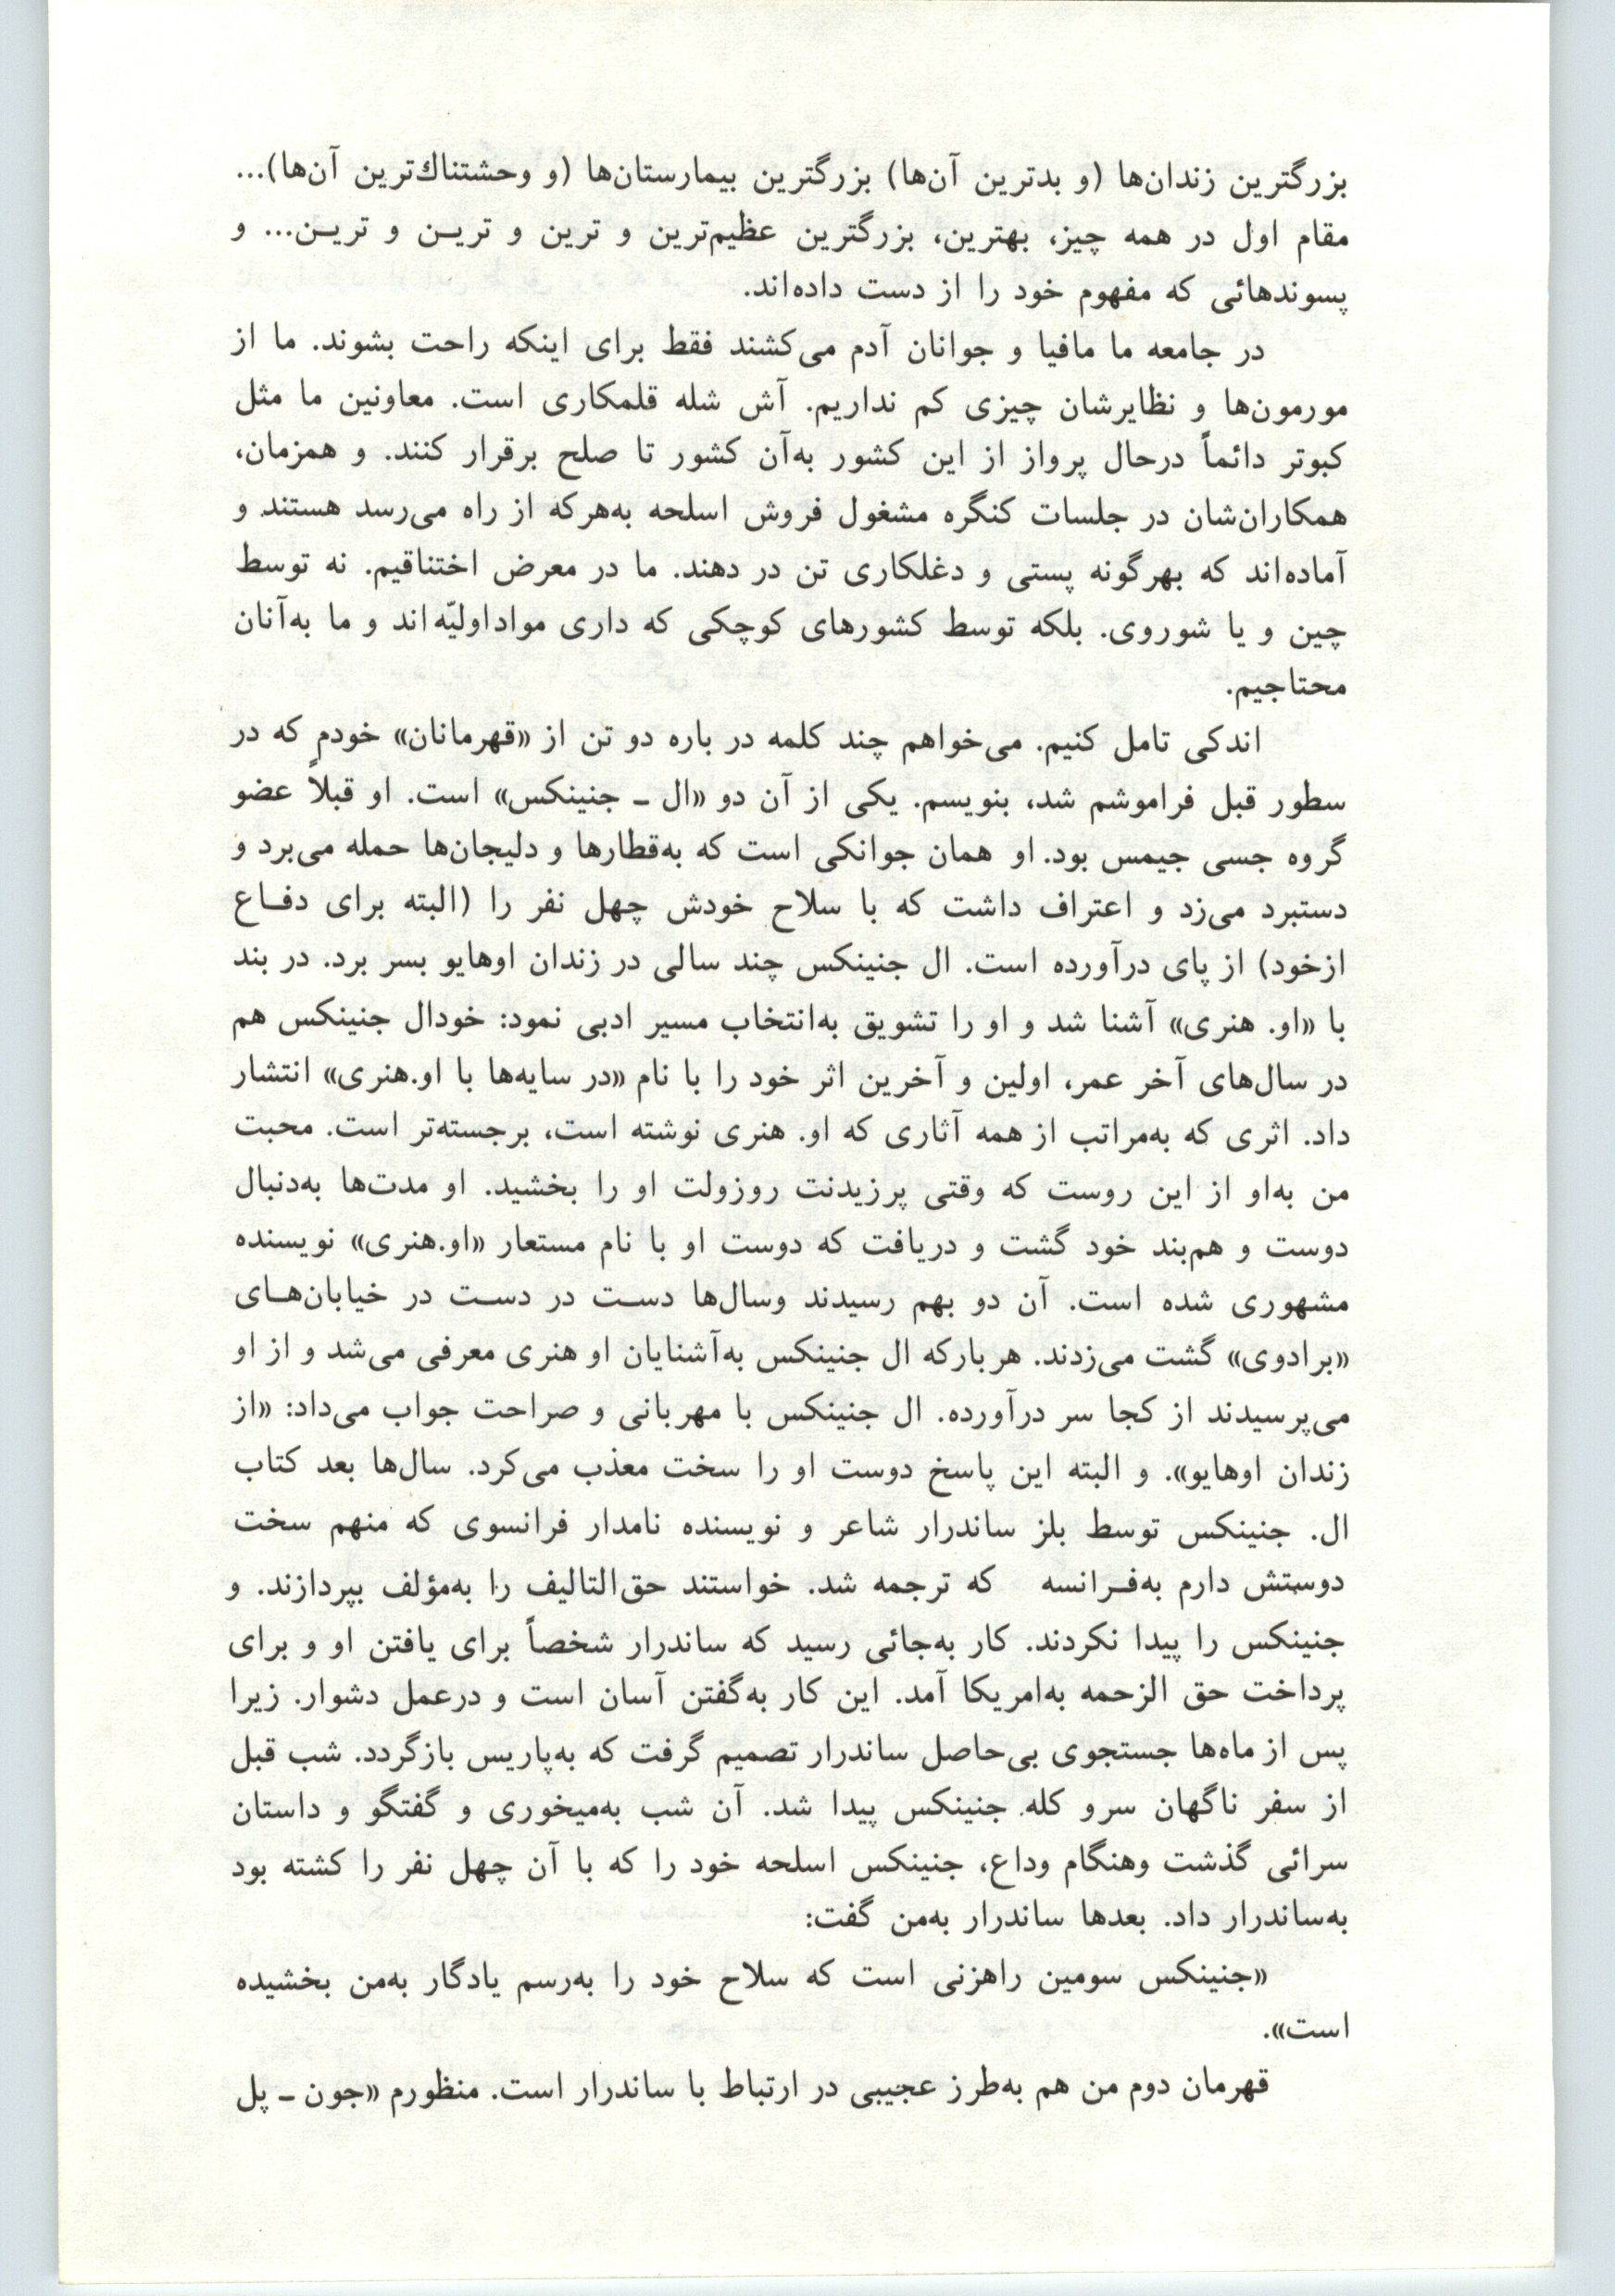 بزرگترین زندان‌ها (و بدترین آن‌ها) بزرگترین بیمارستان‌ها (و وحشتناك‌ترین آن‌ها)...
مقام اول در همه چیز، بهترین، بزرگترین عظیم‌ترین و ترین و تریـن و تریـن... و
پسوندهائی که مفهوم خود را از دست داده‌اند.
در جامعه ما مافیا و جوانان آدم می‌کشند فقط برای اینکه راحت بشوند. ما از
مورمون‌ها و نظایرشان چیزی کم نداریم. آش شله قلمکاری است. معاونین ما مثل
کبوتر دائماً درحال پرواز از این کشور به‌آن کشور تا صلح برقرار کنند. و همزمان،
همکاران‌شان در جلسات کنگره مشغول فروش اسلحه به‌هرکه از راه می‌رسد هستند و
آماده‌اند که بهرگونه پستی و دغلکاری تن در دهند. ما در معرض اختناقیم. نه توسط
چین و یا شوروی. بلکه توسط کشورهای کوچکی که داری مواداولیّه‌اند و ما به‌آنان
محتاجیم.
اندکی تامل کنیم. می‌خواهم چند کلمه در باره دو تن از «قهرمانان» خودم که در
سطور قبل فراموشم شد، بنویسم. یکی از آن دو «ال ـ جنینکس» است. او قبلاً عضو
گروه جسی جیمس بود. او همان جوانکی است که به‌قطارها و دلیجان‌ها حمله می‌برد و
دستبرد می‌زد و اعتراف داشت که با سلاح خودش چهل نفر را (البته برای دفـاع
ازخود) از پای درآورده است. ال جنینکس چند سالی در زندان اوهایو بسر برد. در بند
با «او. هنری» آشنا شد و او را تشویق به‌انتخاب مسیر ادبی نمود: خودال جنینکس هم
در سال‌های آخر عمر، اولین و آخرین اثر خود را با نام «در سایه‌ها با او.هنری» انتشار
داد. اثری که به‌مراتب از همه آثاری که او. هنری نوشته است، برجسته‌تر است. محبت
من به‌او از این روست که وقتی پرزیدنت روزولت او را بخشید. او مدت‌ها به‌دنبال
دوست و هم‌بند خود گشت و دریافت که دوست او با نام مستعار «او.هنری» نویسنده
مشهوری شده است. آن دو بهم رسیدند وسال‌ها دسـت در دسـت در خیابان‌هـای
«برادوی» گشت می‌زدند. هربارکه ال جنینکس به‌آشنایان او هنری معرفی می‌شد و از او
می‌پرسیدند از کجا سر درآورده. ال جنینکس با مهربانی و صراحت جواب می‌داد: «از
زندان اوهایو». و البته این پاسخ دوست او را سخت معذب می‌کرد. سال‌ها بعد کتاب
ال. جنینکس توسط بلز ساندرار شاعر و نویسنده نامدار فرانسوی که منهم سخت
دوستش دارم به‌فـرانسه که ترجمه شد. خواستند حق‌التالیف را به‌مؤلف بپردازند. و
جنینکس را پیدا نکردند. کار به‌جائی رسید که ساندرار شخصاً برای یافتن او و برای
پرداخت حق الزحمه به‌امریکا آمد. این کار به‌گفتن آسان است و درعمل دشوار. زیرا
پس از ماه‌ها جستجوی بی‌حاصل ساندرار تصمیم گرفت که به‌پاریس بازگردد. شب قبل
از سفر ناگهان سرو کله جنینکس پیدا شد. آن شب به‌میخوری و گفتگو و داستان
سرائی گذشت وهنگام وداع، جنینکس اسلحه خود را که با آن چهل نفر را کشته بود
به‌ساندرار داد. بعدها ساندرار به‌من گفت:
«جنینکس سومین راهزنی است که سلاح خود را به‌رسم یادگار به‌من بخشیده
است».
قهرمان دوم من هم به‌طرز عجیبی در ارتباط با ساندرار است. منظورم «جون ـ پل